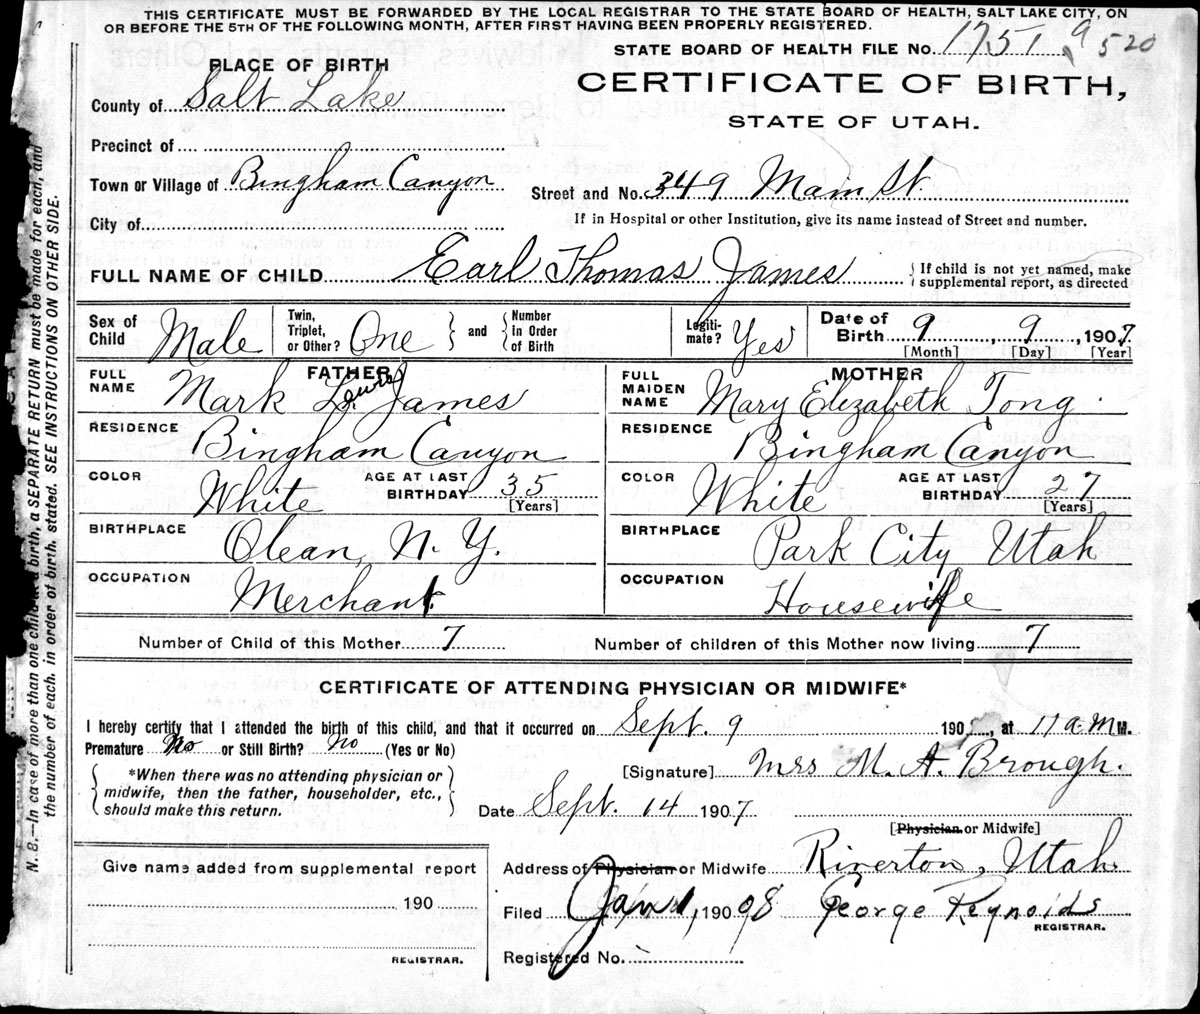 THIS CERTIFICATE MUST BE FORWARDED BY THE LOCAL REGISTRAR TO THE STATE BOARD OF HEALTH, SALT LAKE CITY, ON
OR BEFORE THE 5TH OF THE FOLLOWING MONTH, AFTER FIRST HAVING BEEN PROPERLY REGISTERED.
STATE BOARD OF HEALTH FILE No. 1757 9 520
PLACE OF BIRTH
CERTIFICATE OF BIRTH,
STATE OF UTAH.
County of Salt Lake
Precinct of
Town or Village of Bingham Canyon
Street and No. 349 Main St.
If in Hospital or other Institution, give its name instead of Street and number.
City of
FULL NAME OF CHILD Earl Thomas James
If child is not yet named, make
supplemental report, as directed
Sex of Child Male
Twin, Triplet, or Other? One
and
Number in Order of Birth
Legiti-mate? Yes
Date of Birth 9, 9, 1907
[Month] [Day] [Year]
FATHER
FULL NAME Mark Lewis James
RESIDENCE Bingham Canyon
COLOR White
AGE AT LAST BIRTHDAY 35
[Years]
BIRTHPLACE Olean, N. Y.
OCCUPATION Merchant
MOTHER
FULL MAIDEN NAME Mary Elizabeth Tong
RESIDENCE Bingham Canyon
COLOR White
AGE AT LAST BIRTHDAY 27
[Years]
BIRTHPLACE Park City Utah
OCCUPATION Housewife
Number of Child of this Mother 7
Number of children of this Mother now living 7
CERTIFICATE OF ATTENDING PHYSICIAN OR MIDWIFE*
I hereby certify that I attended the birth of this child, and that it occurred on Sept. 9 190 , at 11 a.m M.
Premature No or Still Birth? No (Yes or No)
*When there was no attending physician or
midwife, then the father, householder, etc.,
should make this return.
[Signature] Mrs M. A. Brough.
Date Sept. 14 1907
[Physician or Midwife]
Give name added from supplemental report
190
REGISTRAR.
Address of Physician or Midwife Riverton, Utah.
Filed Jan 1, 1908 George Reynolds
REGISTRAR.
Registered No.
N. B.—In case of more than one child at a birth, a SEPARATE RETURN must be made for each, and
the number of each, in order of birth, stated. SEE INSTRUCTIONS ON OTHER SIDE.